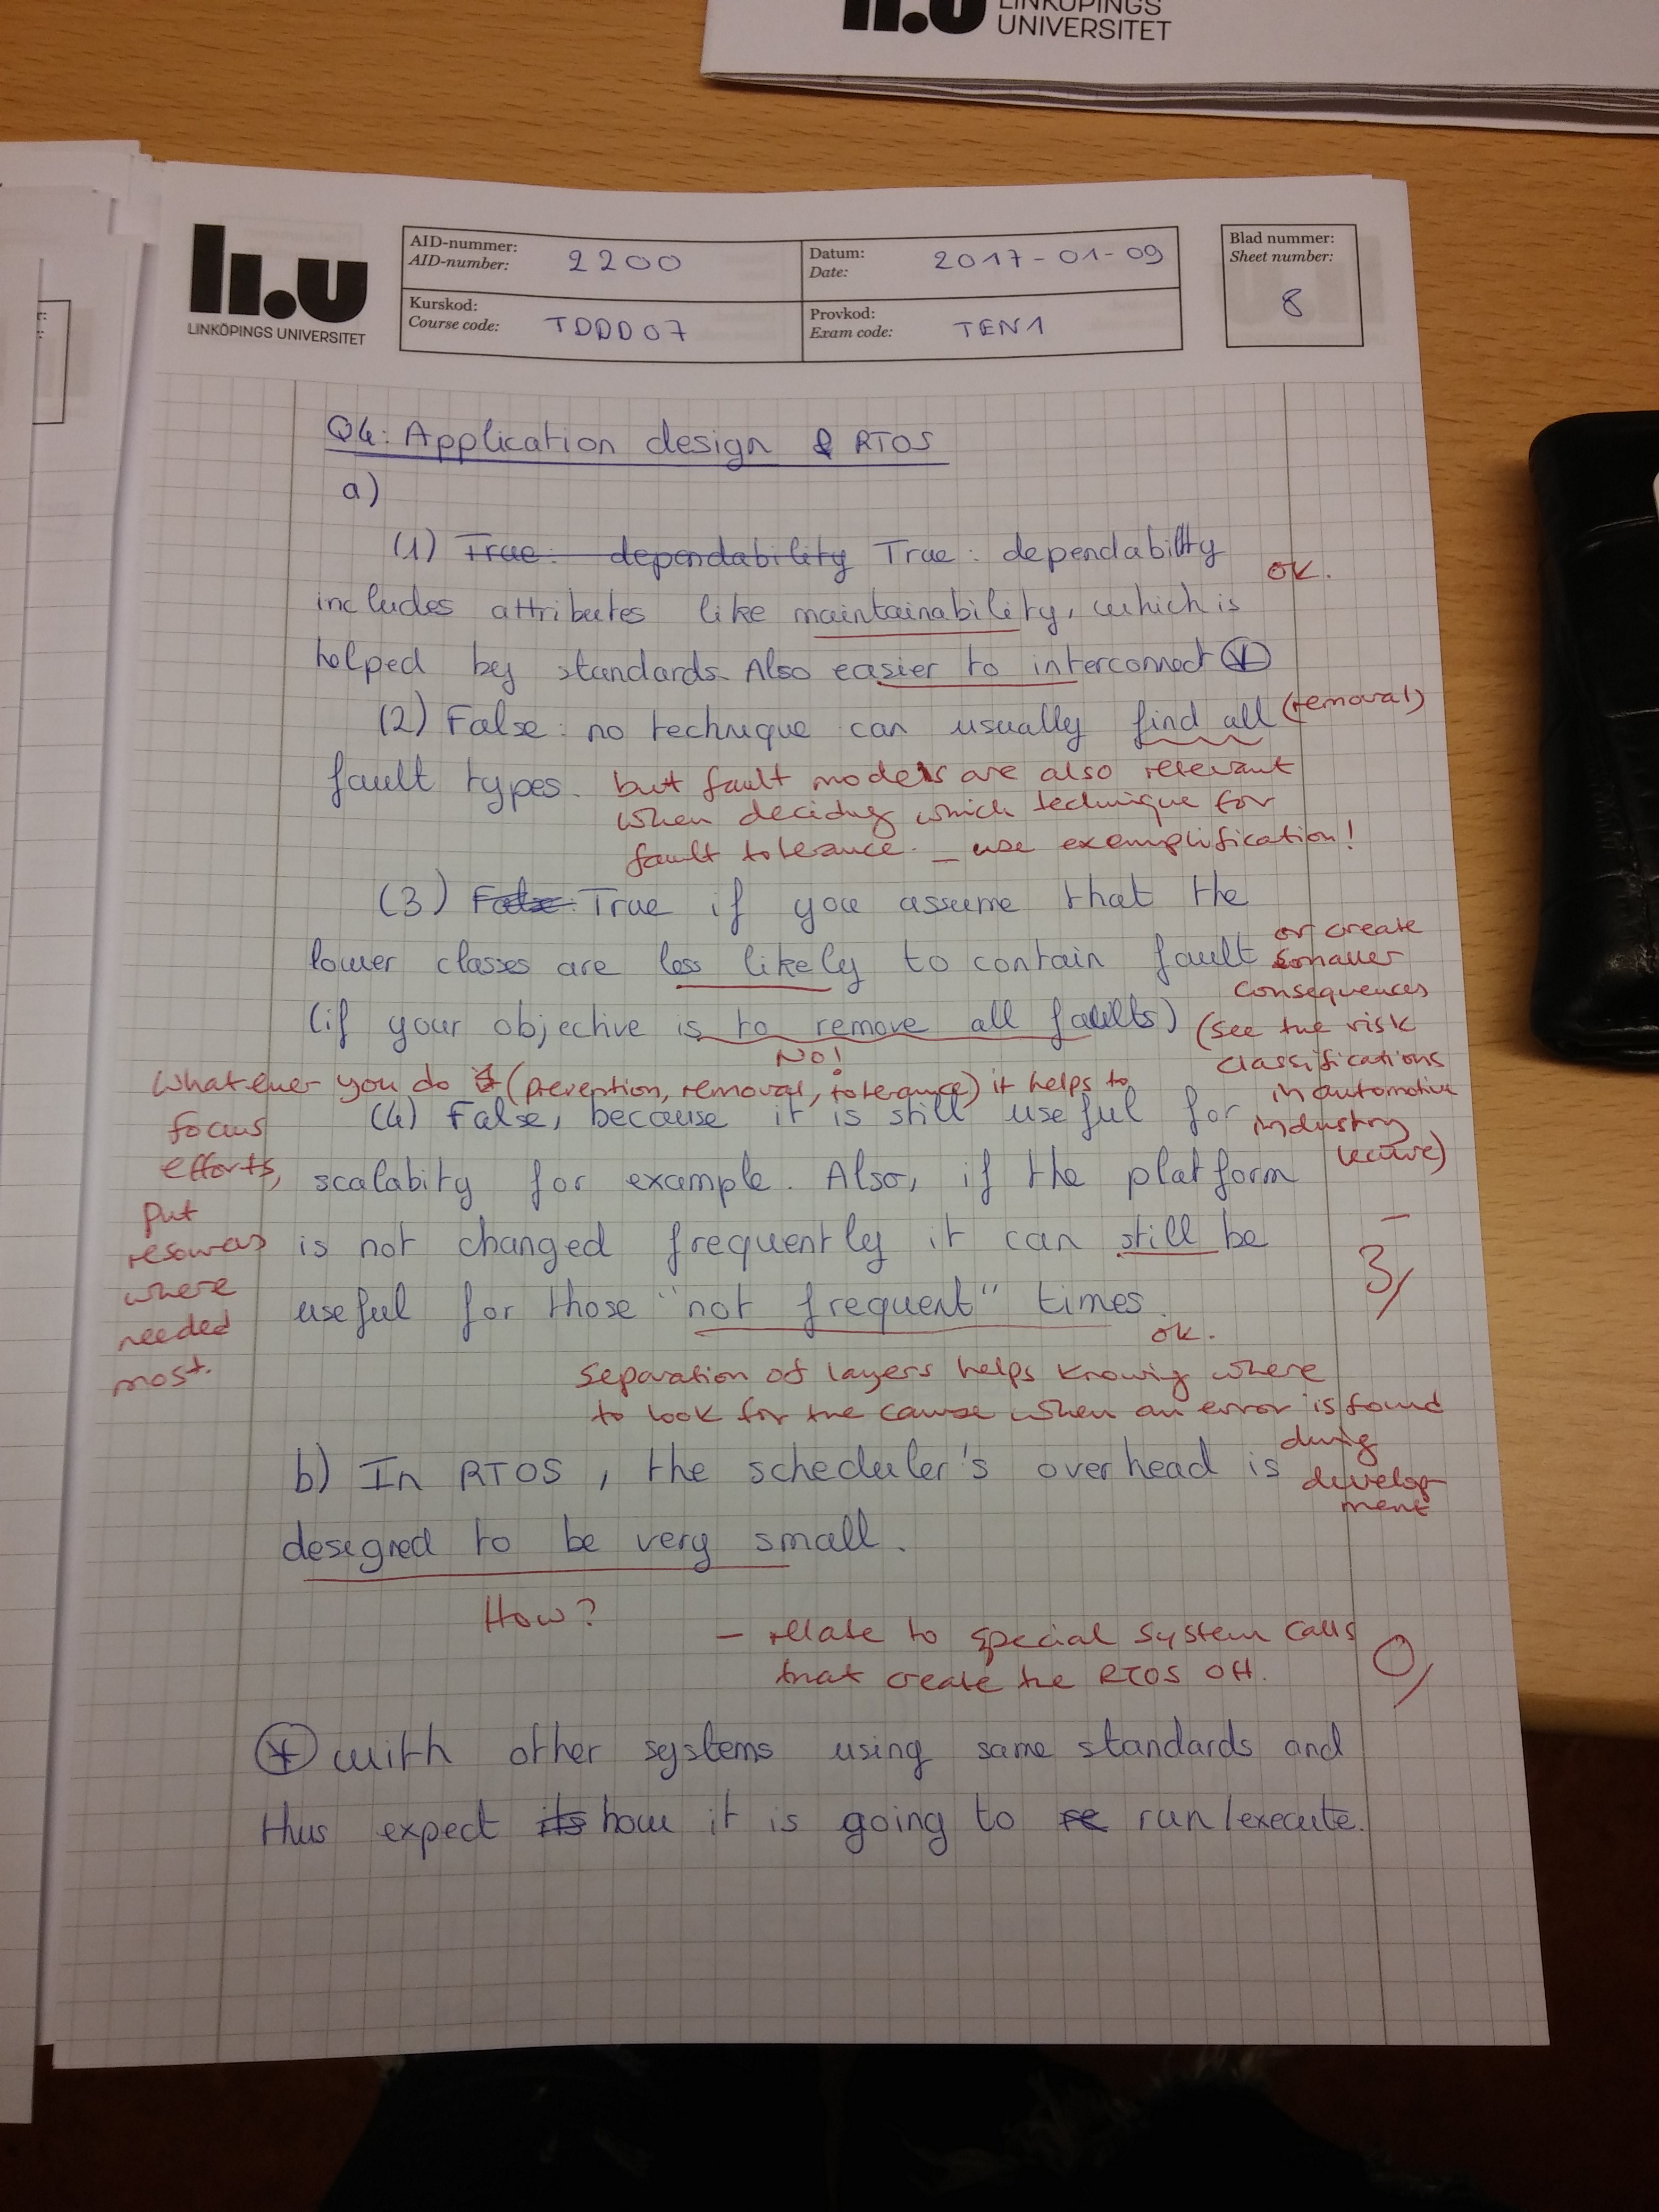 LINKÖPINGS
li.u UNIVERSITET
li.u
LINKÖPINGS UNIVERSITET
AID-nummer:
AID-number: 2200
Datum:
Date: 2017-01-09
Blad nummer:
Sheet number:
8
Kurskod:
Course code: TDDD07
Provkod:
Exam code: TEN1
Q4: Application design & RTOS
a)
(1) True: dependability True: dependability
ok.
includes attributes like maintainability, which is
helped by standards. Also easier to interconnect *
(2) False: no technique can usually find all (removal)
fault types. but fault models are also relevant
when deciding which technique for
fault tolerance. - use exemplification!
(3) False: True if you assume that the
lower classes are less likely to contain fault
or create
smaller
consequences
(if your objective is to remove all faults)
(see the risk
classifications
in automotive
industry
lecture)
NO!
Whatever you do (prevention, removal, tolerance) it helps to
focus
efforts,
put
resources
where
needed
most.
(4) False, because it is still useful for
scalabity for example. Also, if the platform
is not changed frequently it can still be
useful for those "not frequent" times.
ok.
3,
Separation of layers helps knowing where
to look for the cause when an error is found
during
develop-
ment
b) In RTOS, the scheduler's overhead is
designed to be very small.
How?
- relate to special system calls
that create the RTOS OH.
0,
* with other systems using same standards and
thus expect its how it is going to re run/execute.